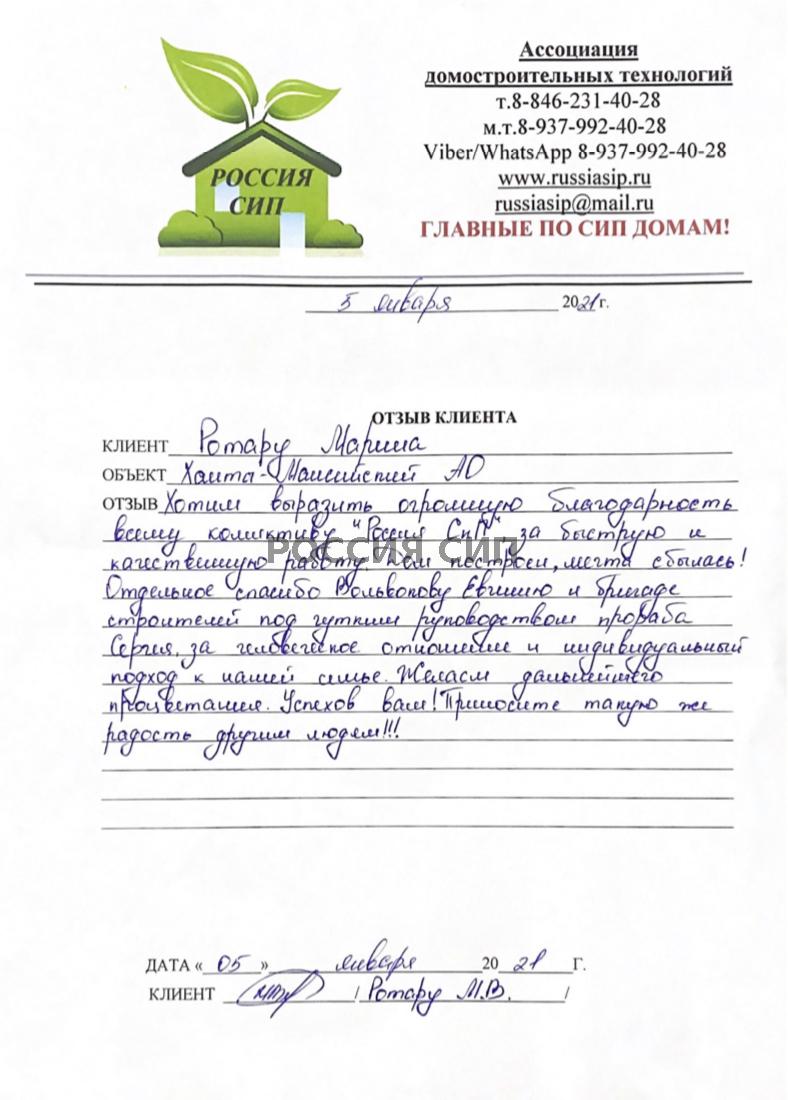 РОССИЯ
СИП
Ассоциация
домостроительных технологий
т.8-846-231-40-28
м.т.8-937-992-40-28
Viber/WhatsApp 8-937-992-40-28
www.russiasip.ru
russiasip@mail.ru
ГЛАВНЫЕ ПО СИП ДОМАМ!
5 января 2021 г.
ОТЗЫВ КЛИЕНТА
КЛИЕНТ Ротару Марина
ОБЪЕКТ Ханты-Мансийский АО
ОТЗЫВ Хотим выразить огромную благодарность
всему коликтиву "Россия Сип" за быструю и
РОССИЯ СИП
качественную работу. Дом построен, мечта сбылась!
Отдельное спасибо Евгению и бригаде
строителей под чутким руководством прораба
Сергея, за человеческое отношение и индивидуальный
подход к нашей семье. Желаем дальнейшего
процветания. Успехов вам! Приносите такую же
радость другим людям!!!
ДАТА « 05 » января 20 21 Г.
КЛИЕНТ / Ротару М.В. /